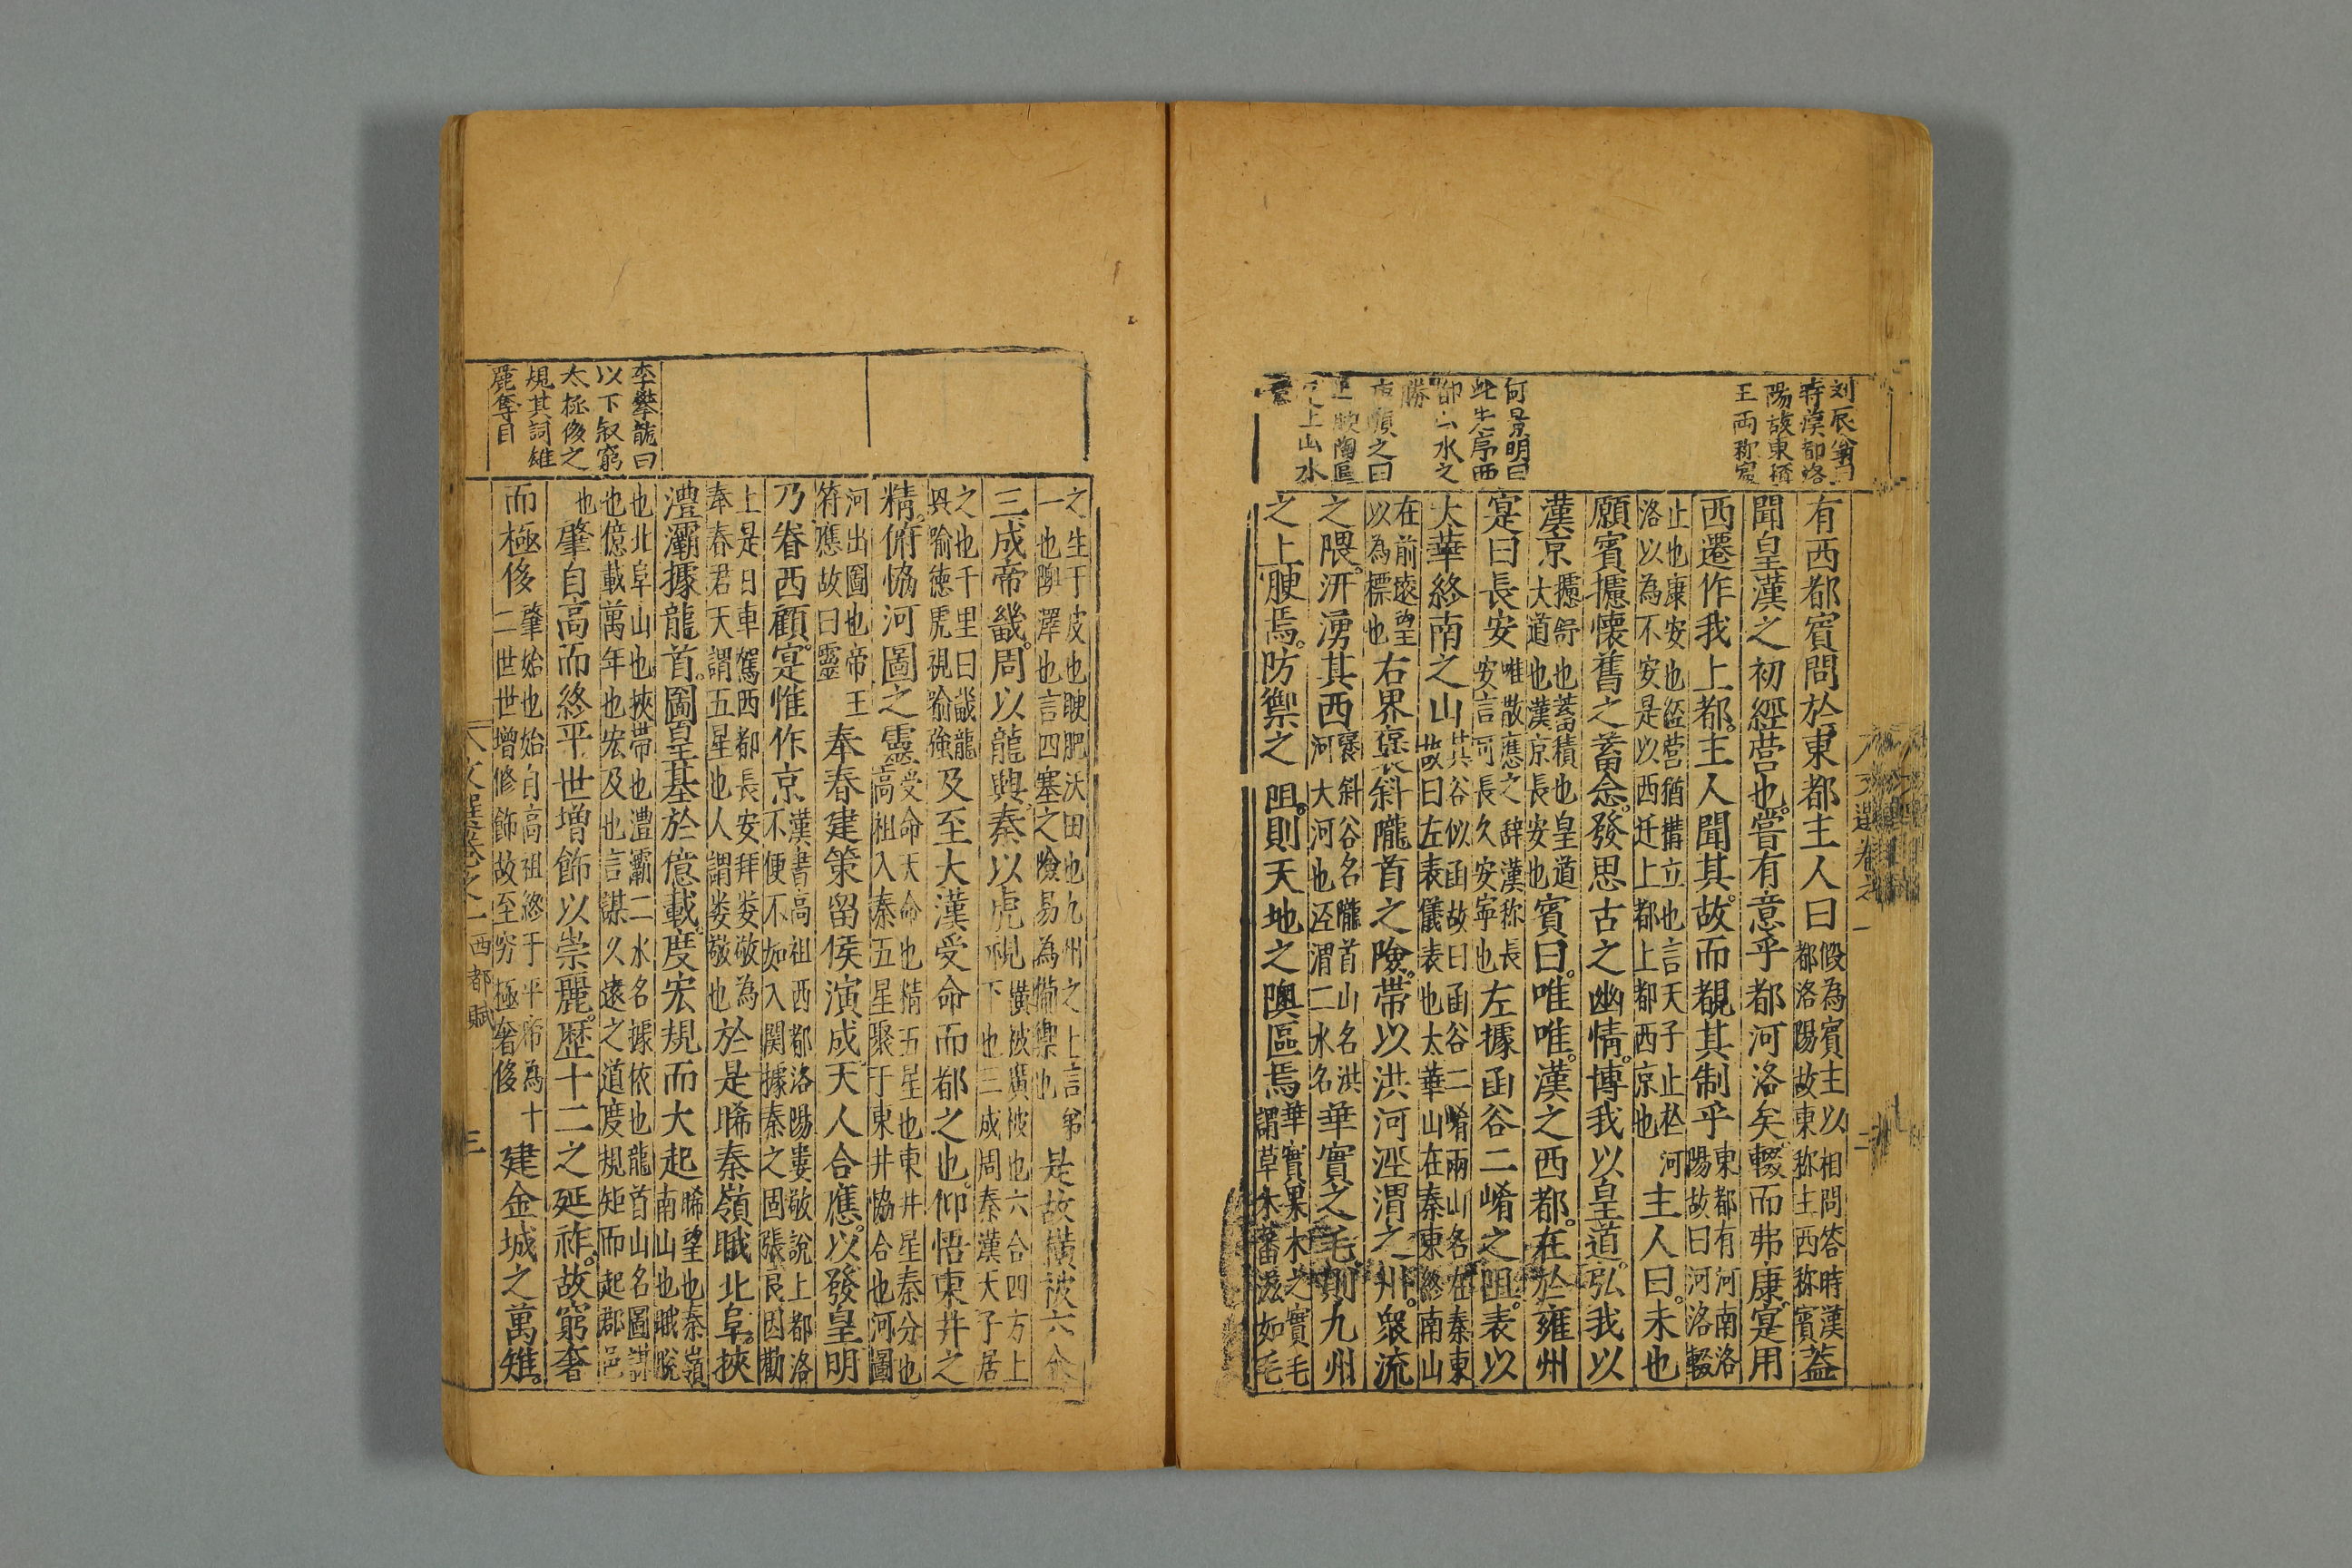 刘辰翁曰
時漢都洛
陽故東稱
王西称賔
何景明曰
此先序西
都山水之
勝
有西都賔問於東都主人曰
假為賓主以相問答時漢
都洛陽故東称主西称賓
蓋
聞皇漢之初經營也嘗有意乎都河洛矣輟而弗康寔用
西遷作我上都主人聞其故而覩其制乎
東都有河南洛
陽故曰河洛輟
止也康安也經营猶搆立也言天子止於河
洛以為不安是以西迁上都上都西京也
主人曰未也
願賓攄懷舊之蓄念發思古之幽情博我以皇道弘我以
漢京
攄舒也蓄積也皇道
大道也漢京長安也
賓曰唯唯漢之西都在於雍州
寔曰長安
唯散應之辞漢称長
安言可長久安寧也
左據函谷二崤之阻表以
太華終南之山
其谷似函故曰函谷二崤兩山名在秦東
故曰左表儀表也太華山在秦東終南山
在前遠望
以為標也
右界褒斜隴首之險帶以洪河涇渭之川衆流
之隈汧湧其西
褒斜谷名隴首山名洪
河大河也泾渭二水名
華實之毛則九州
之上腴焉防禦之阻則天地之隩區焉
華實果木之實毛
謂草木蕃滋如毛
之生于皮也腴肥沃田也九州之上言第
一也隩深也言四塞之險易為備禦也
是故横被六合
三成帝畿周以龍興秦以虎視
横被廣被也六合四方上
下也三成周秦漢天子居
之也千里曰畿龍
興喻徳虎視喻強
及至大漢受命而都之也仰悟東井之
精俯恊河圖之靈
受命天命也精五星也東井星秦分也
高祖入秦五星聚于東井恊合也河圖
河出圖也帝王
符應故曰靈
奉春建策留侯演成天人合應以發皇明
乃眷西顧寔惟作京
漢書高祖西都洛陽婁敬說上都洛
不便不如入關據秦之固張良因勸
上是日車駕西都長安拜娄敬為
奉春君天謂五星也人謂娄敬也
於是睎秦嶺睋北阜挾
灃灞據龍首圖皇基於億載度宏規而大起
睎望也秦嶺
南山也睋視
也北阜山也挾帶也灃灞二水名據依也龍首山名圖謀
也億載萬年也宏及也言謀久遠之道度規矩而起郡邑
也
肇自高而終平世增飾以崇麗歷十二之延祚故窮奢
而極侈
肇始也始自高祖終于平帝為十
二世世增修飾故至穷極奢侈
建金城之萬雉
李攀龍曰
以下叙窮
太極侈之
規其詞雄
麗奪目
西都賦
三